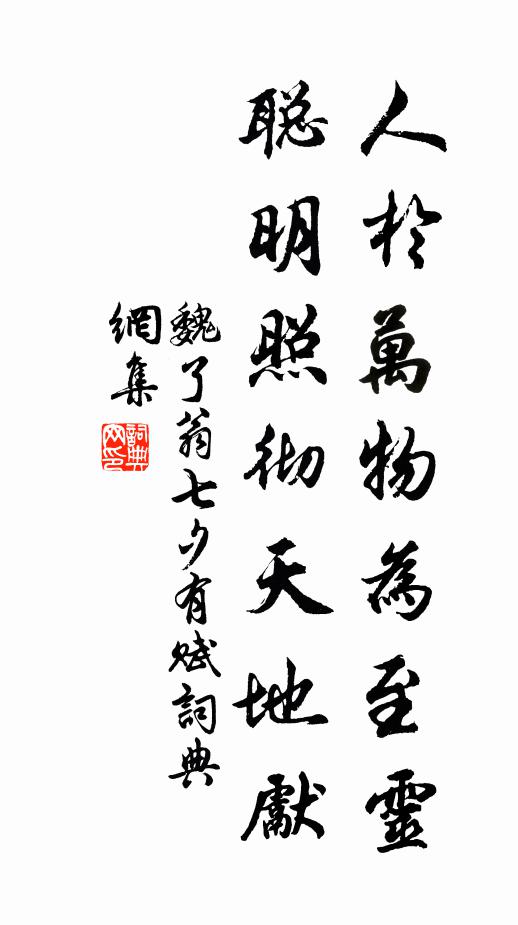 人於萬物為至靈
聰明照彻天地獻
魏了翁七夕有賦詞典
網集
詞典
网印